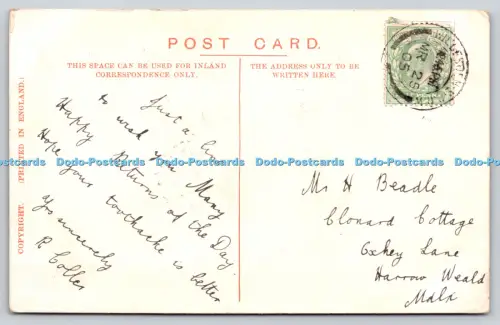 POST CARD.
THIS SPACE CAN BE USED FOR INLAND
CORRESPONDENCE ONLY.
THE ADDRESS ONLY TO BE
WRITTEN HERE.
COPYRIGHT. (PRINTED IN ENGLAND.)
Just a line
to wish you Many
Happy Returns of the Day.
Hope your toothache is better
Yrs sincerely
R Colles
Mr H Beadle
Clonard Cottage
Oxhey Lane
Harrow Weald
Midx
Dodo-Postcards Dodo-Postcards Dodo-Postcards Dodo-Postcards Dodo-Postcards Dodo-Postcards